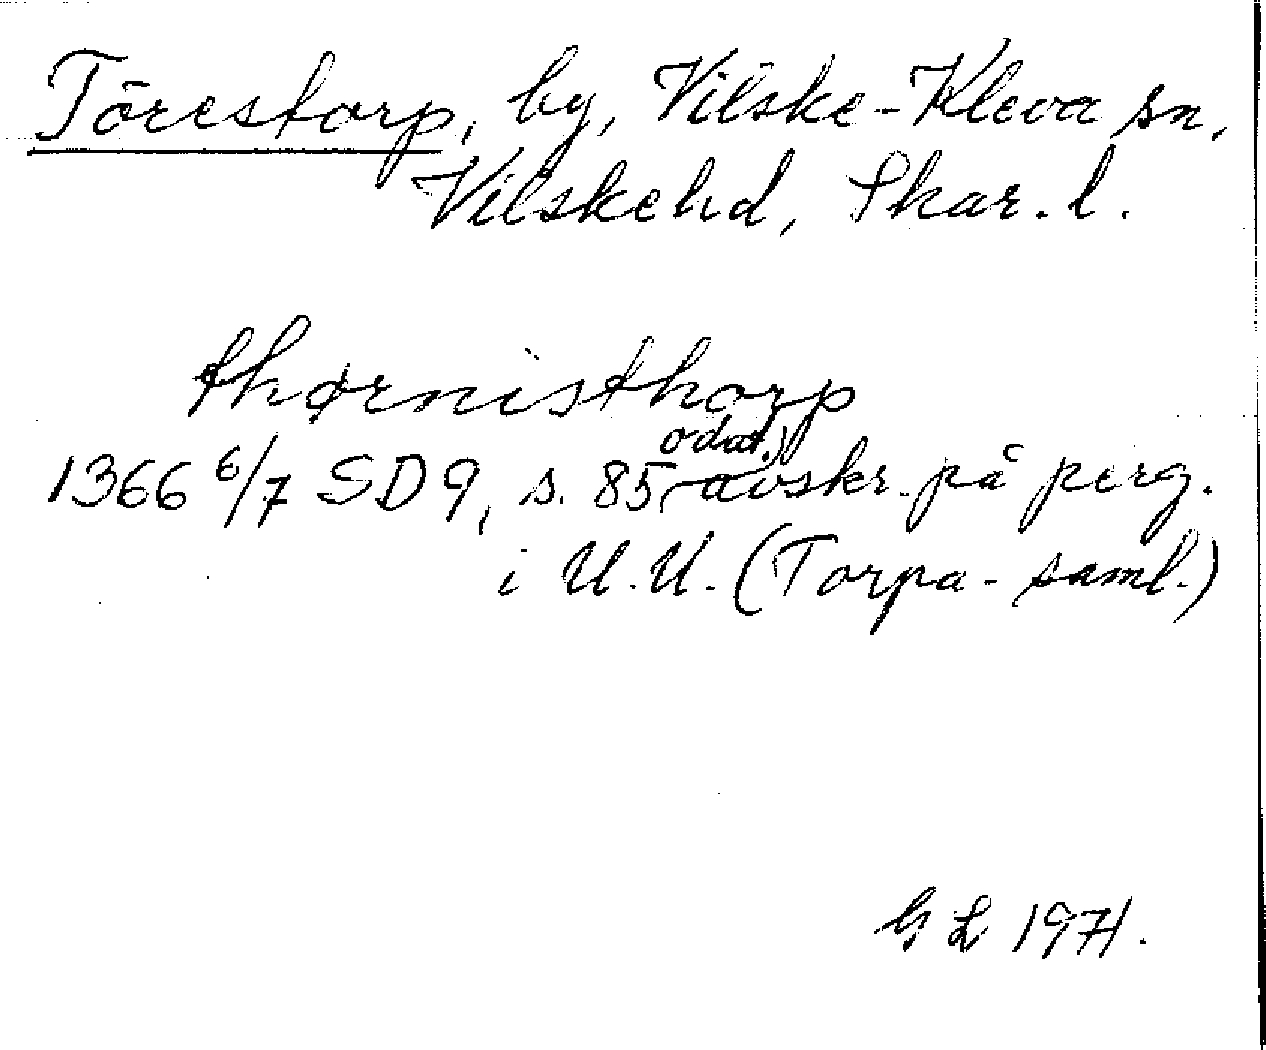 Törestorp, by, Vilske-Kleva sn,
Vilskehd, Skar. l.
thørnisthorp
odat.)
1366 6/7 SD 9, s. 85 avskr. på perg.
i U.U. (Torpa-saml.)
G L 1971.